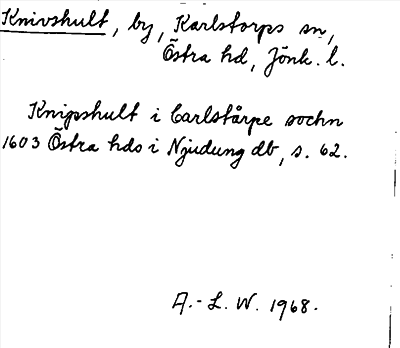 Knivshult, by, Karlstorps sn,
Östra hd, Jönk. l.
Knipshult i Carlstårpe sochn
1603 Östra hds i Njudung db, s. 62.
A.-L. W. 1968.